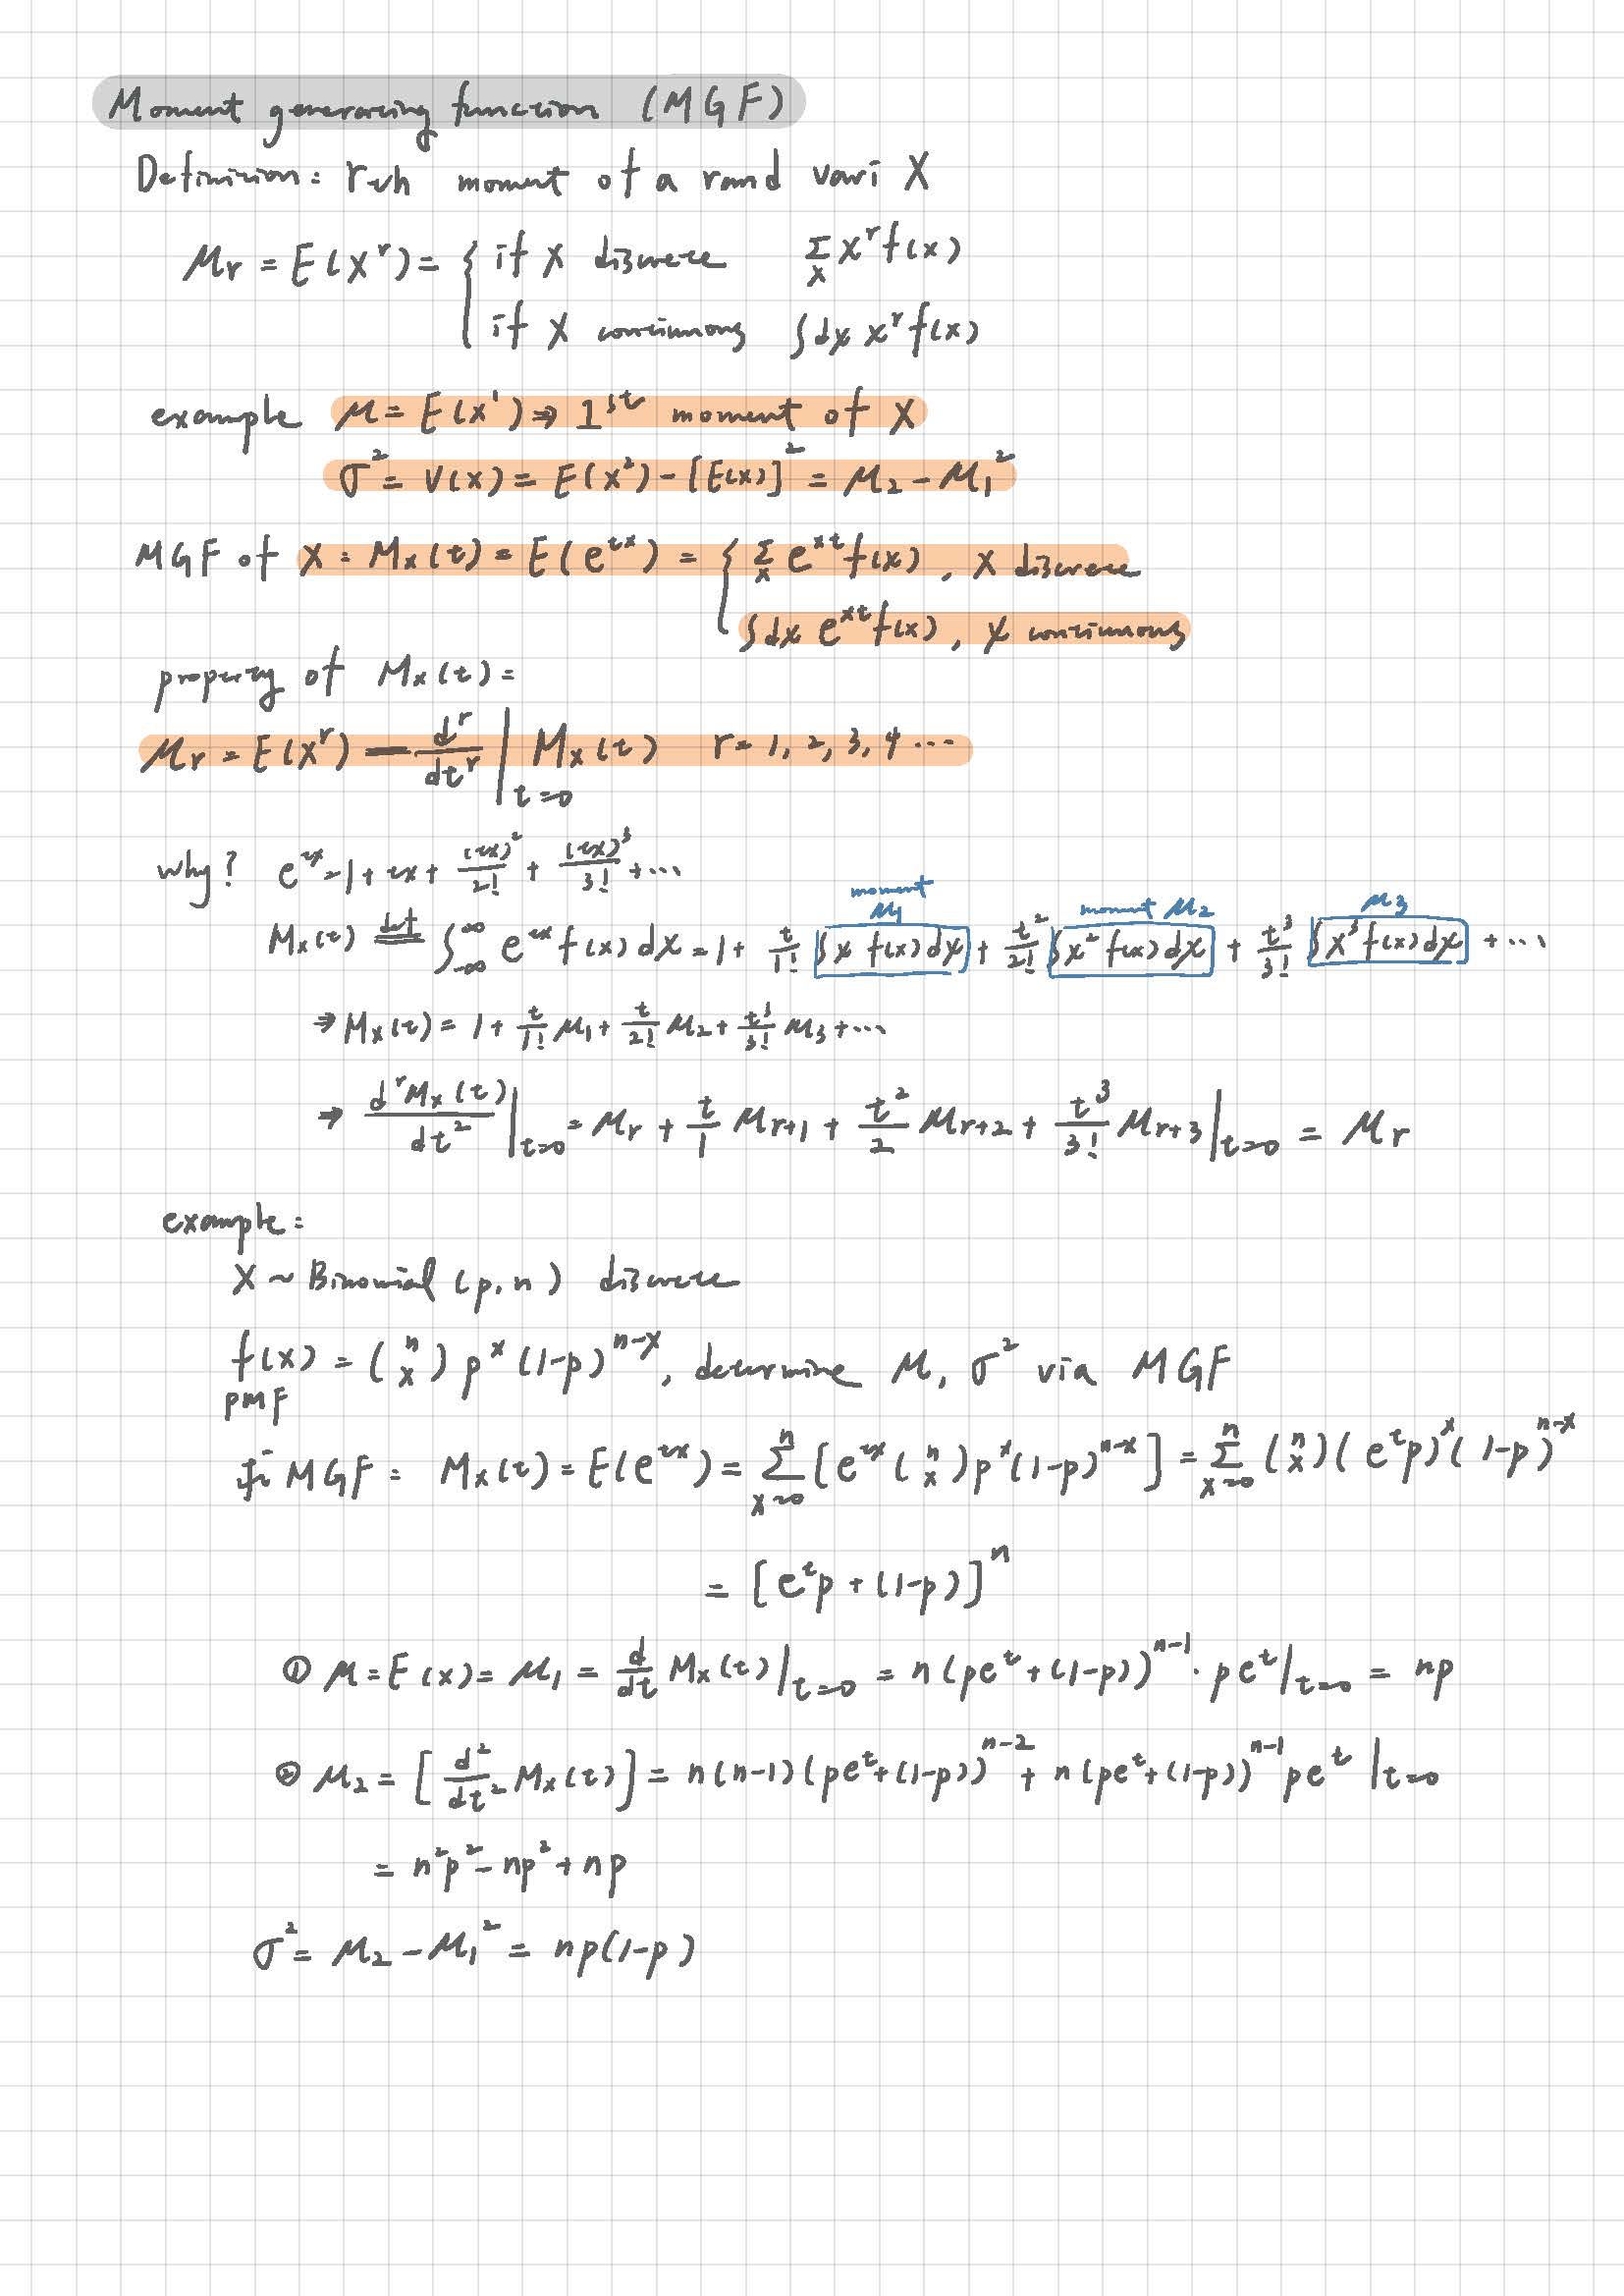 Moment generating function (MGF)
Definition: rth moment of a rand vari X
μr = E(X^r) = { if X discrete Σ_x x^r f(x)
if X continuous ∫dx x^r f(x)
example μ = E(x') ⇒ 1st moment of X
σ² = V(x) = E(x²) - [E(x)]² = μ₂ - μ₁²
MGF of X: Mx(t) = E(e^{tx}) = { Σ_x e^{xt} f(x), X discrete
∫dx e^{xt} f(x), X continuous
property of Mx(t):
μr = E(X^r) = d^r/dt^r |_{t=0} Mx(t) r = 1, 2, 3, 4 ...
why? e^{tx} = 1 + tx + (tx)²/2! + (tx)³/3! + ...
moment μ₁ moment μ₂ μ₃
Mx(t) def= ∫_{-∞}^{∞} e^{tx} f(x) dx = 1 + t/1! ∫x f(x)dx + t²/2! ∫x² f(x)dx + t³/3! ∫x³ f(x)dx + ...
⇒ Mx(t) = 1 + t/1! μ₁ + t/2! μ₂ + t³/3! μ₃ + ...
⇒ d^r Mx(t)/dt² |_{t=0} = μr + t/1 μ_{r+1} + t²/2 μ_{r+2} + t³/3! μ_{r+3} |_{t=0} = μr
example:
X ~ Binomial (p, n) discrete
f(x) = (n x) p^x (1-p)^{n-x}, determine μ, σ² via MGF
PMF
MGF: Mx(t) = E(e^{tx}) = Σ_{x=0}^{n} [e^{tx} (n x) p^x (1-p)^{n-x}] = Σ_{x=0}^{n} (n x)(e^t p)^x (1-p)^{n-x}
= [e^t p + (1-p)]^n
① μ = E(x) = μ₁ = d/dt Mx(t)|_{t=0} = n(pe^t + (1-p))^{n-1} · pe^t|_{t=0} = np
② μ₂ = [d²/dt² Mx(t)] = n(n-1)(pe^t + (1-p))^{n-2} + n(pe^t + (1-p))^{n-1} pe^t |_{t=0}
= n²p² - np² + np
σ² = μ₂ - μ₁² = np(1-p)